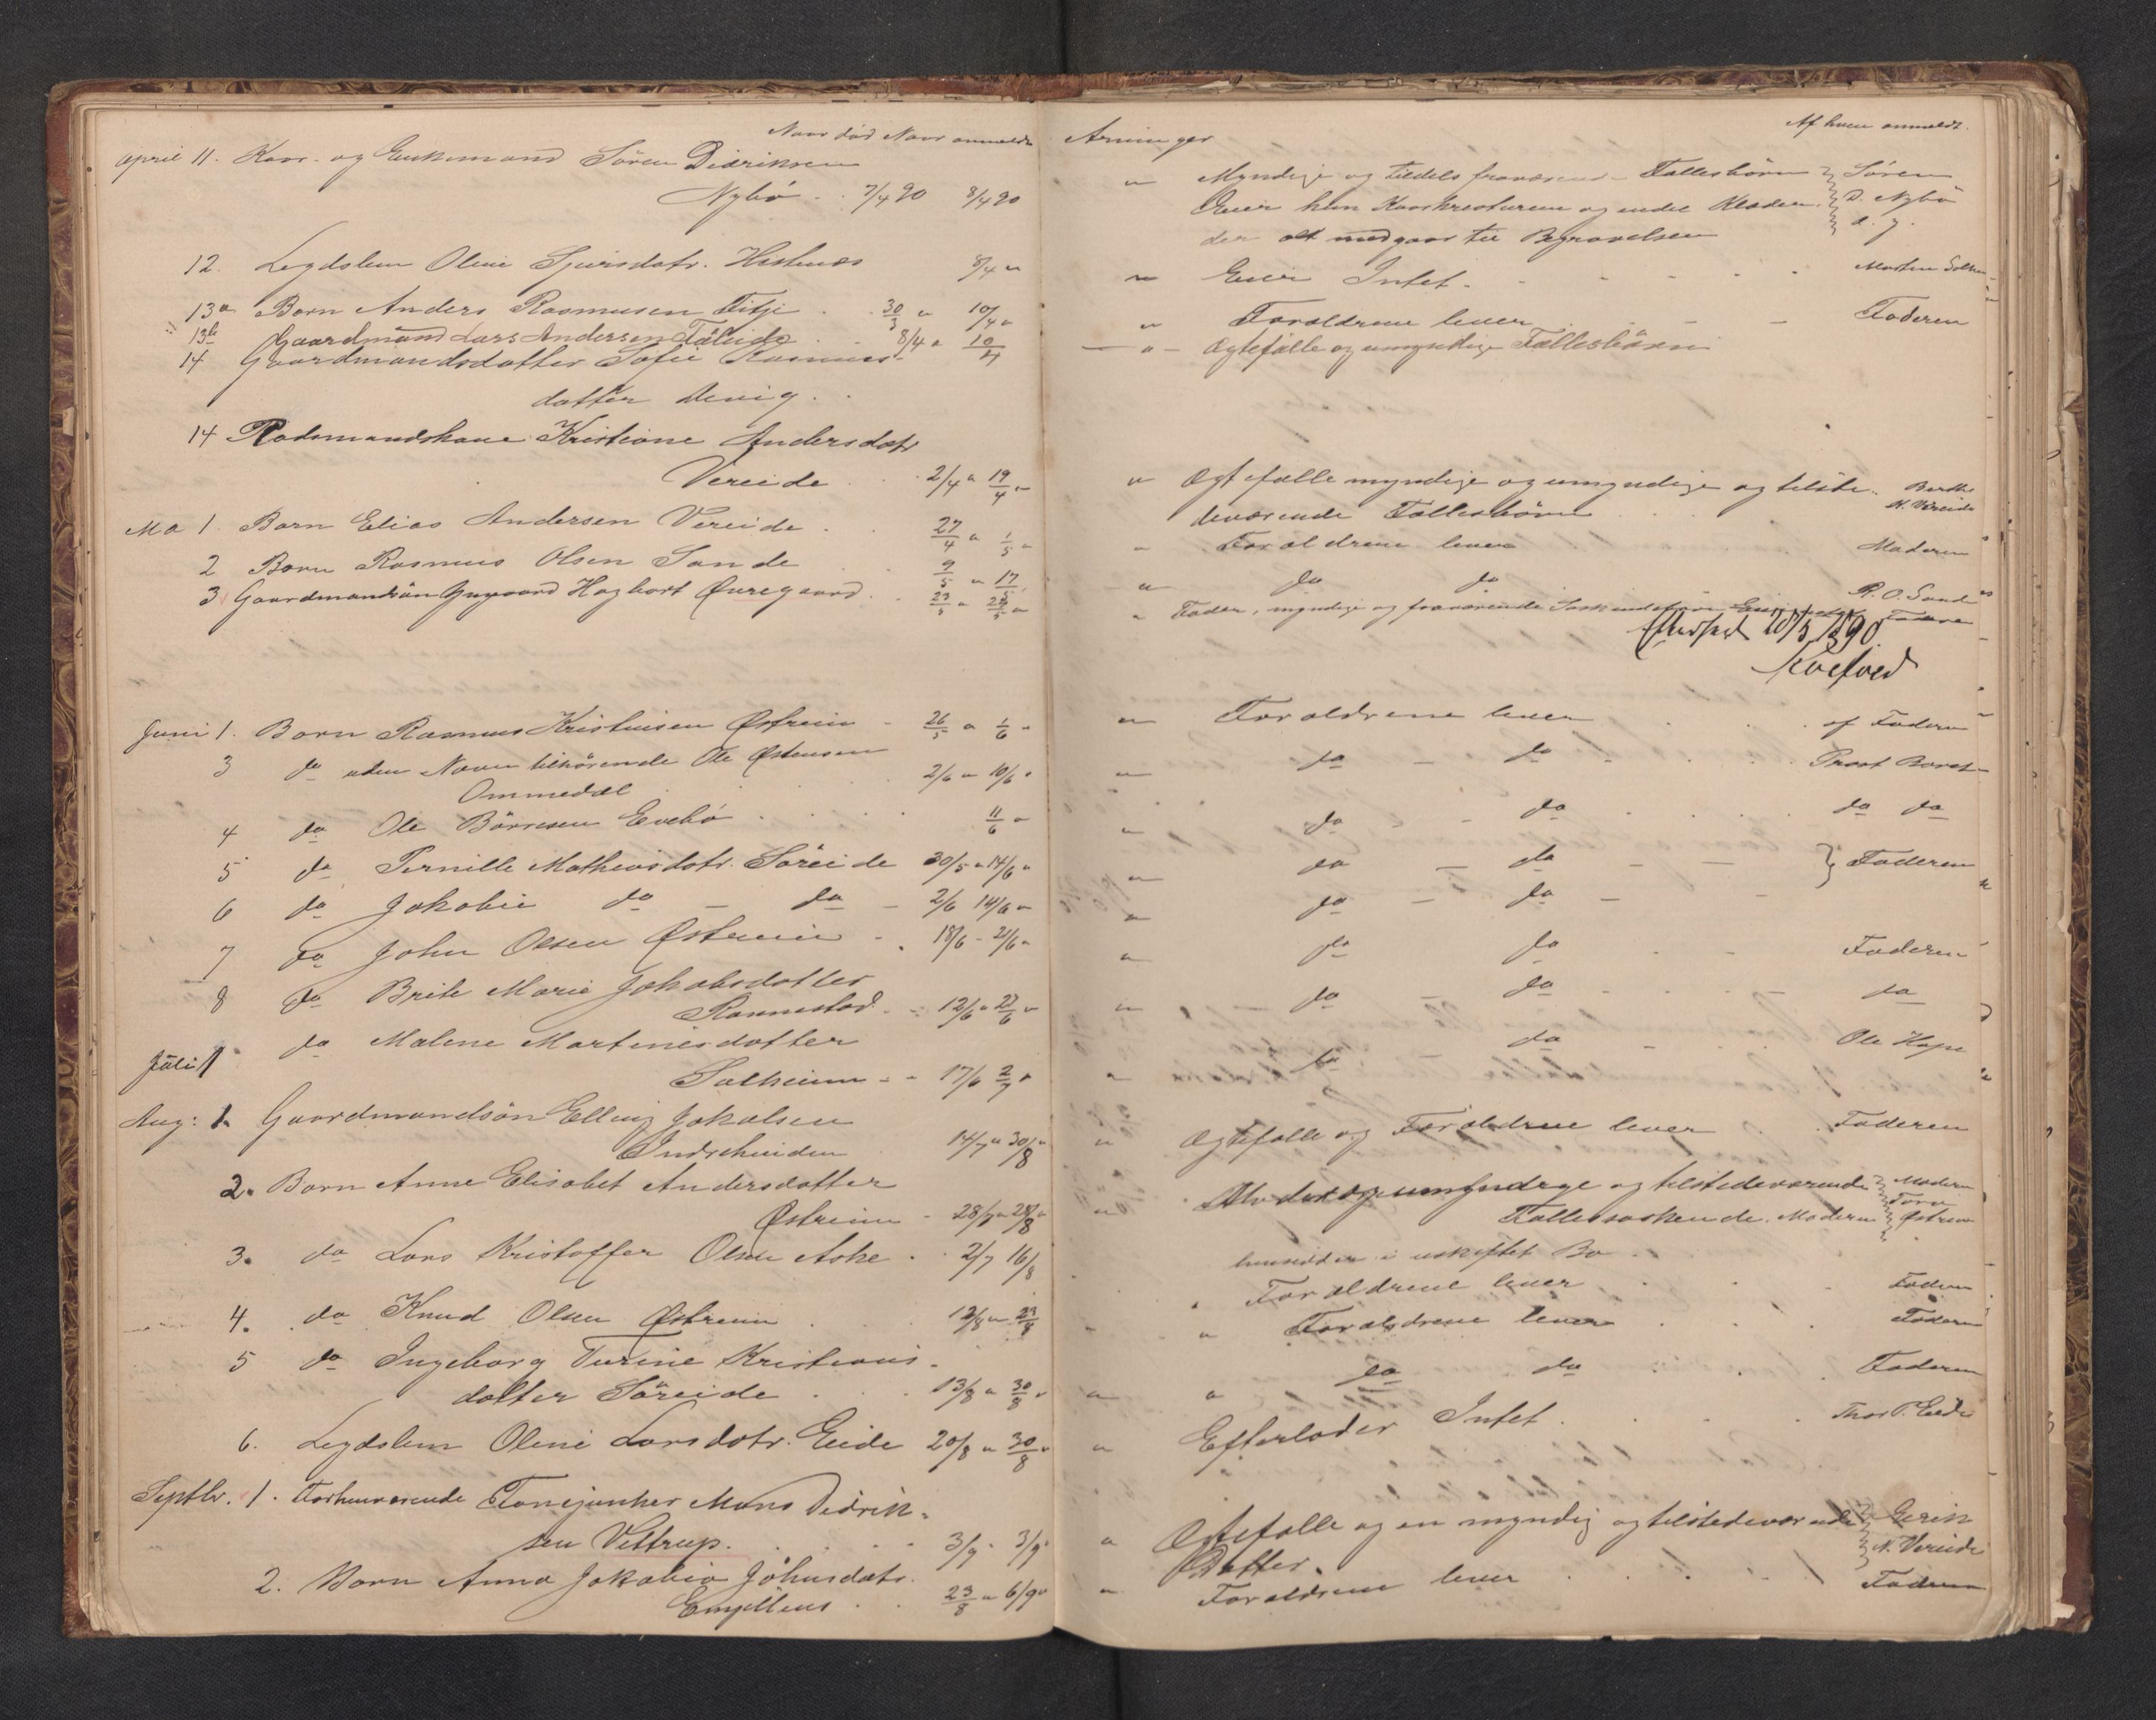 Naar død Naar anmeldt
april 11. Kaar- og Enkemand Sören Didriksen
Nybö . . 7/4 90 8/4 90
12. Legdslem Oline Sjursdatr. Hestenæs 8/4 "
13a Barn Anders Rasmusen Fitje . . 30/3 " 10/4 "
13b Gaardmand Lars Andersen Föleide . . 8/4 " 10/4
14 Gaardmandsdatter Sofie Rasmus-
datter Devig . .
14 Pladsmandskone Kristiane Andersdatr
Vereide . . 2/4 " 19/4 "
Mai 1. Barn Elias Andersen Vereide . . 27/4 " 1/5 "
2 Barn Rasmus Olsen Sande . . 9/5 " 17/5
3 Gaardmandsön Hagbart Øvregaard . . 23/5 " 28/5 "
Juni 1. Barn Rasmus Kristensen Østreim - 26/5 " 1/6 "
3 do uden Navn tilhörende Ole Østensen
Ommedal 2/6 " 10/6 "
4 do Ole Börresen Evebö . . . . 11/6 "
5 do Pernille Matheusdotr. Söreide 30/5 " 14/6 "
6 do Jakobie do - do - 2/6 14/6 "
7 do John Olsen Østreim - . 18/6 - 21/6 "
8 do Brite Marie Jakobsdatter
Rannestad - - 12/6 " 22/6 "
Juli 1 do Malene Martinesdatter
Solheim - - 17/6 2/7 "
Aug: 1. Gaardmandsön Elling Jakobsen
Indreheiden 14/7 " 30/8 "
2. Barn Anne Elisabet Andersdatter
Østreim - 28/7 " 28/8 "
3. do Lars Kristoffer Olsen Aske . . 2/7 16/8
4. do Knud Olsen Østreim . 12/8 " 23/8
5 do Ingeborg Turine Kristians-
datter Söreide . . 13/8 " 30/8 "
6. Legdslem Oline Larsdotr. Eide 20/8 " 30/8 "
Septbr. 1. Forhenværende Fanejunker Mons Didrik-
sen Vettrup. . . . . 3/9 - 3/9 "
2. Barn Anna Jakobia Johnsdatr.
. . 23/8 " 6/9 "
Arvinger Af hvem anmeldt.
" Myndige og tildels fraværende Fællesbörn } Sören
Eier kun Kaarkreaturene og endel Klæder } D. Nybö
der alt medgaar til Begravelsen } d. y.
" Eier Intet. - - - - . Morten Solhei-
" Forældrene lever - - - Faderen
" Ægtefælle og umyndige Fællesbörn
" Ægtefælle myndige og umyndige og tilste- Berthe
deværende Fællesbörn . . . N. Vereide
" Forældrene lever Moderen
" do do R. O. Sande
" Fader, myndige og fraværende Faderen
Eftersseet 28/5 1890.
Koefoed
" Forældrene lever . . af Faderen
" do - do . . . Provst
" do - do . . . . do do
" do - do - - } Faderen
" do - do - -
" do do - - Faderen
" do - do - . . - do
" do do - . . Ole Hope
" Ægtefælle og Forældrene lever . . Faderen
" Moder og umyndige og tilstedeværende } Moderen
Fællessöskende. Moderen } Østreim
hensidder i uskiftet Bo -
. Forældrene lever . . . Faderen
" Forældrene lever . . . Faderen
" " do do . . . Faderen
" Efterlader Intet . . . . Thor Eide
" Ægtefælle og en myndig og tilstedeværende }
Datter. } N. Vereide
" Forældrene lever . . . Faderen